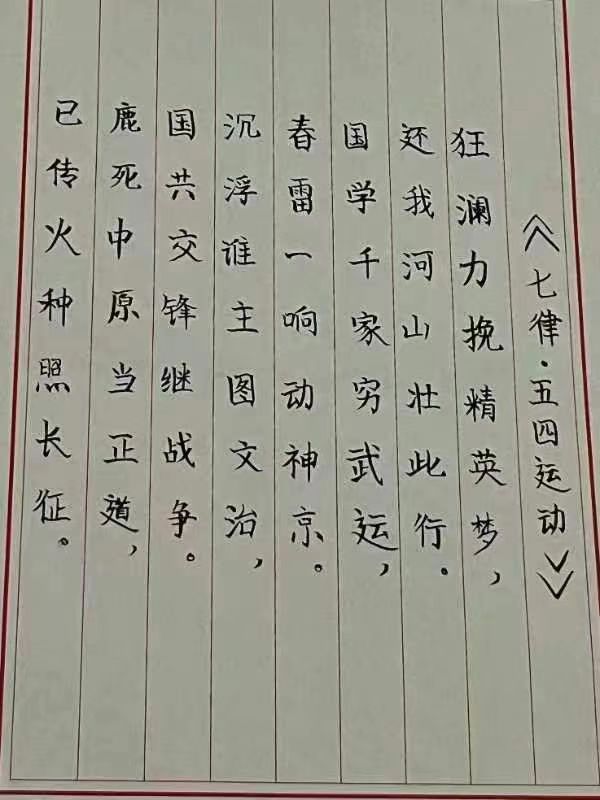 《七律·五四运动》
狂澜力挽精英梦，
还我河山壮此行。
国学千家穷武运，
春雷一响动神京。
沉浮谁主图文治，
国共交锋继战争。
鹿死中原当正道，
已传火种照长征。